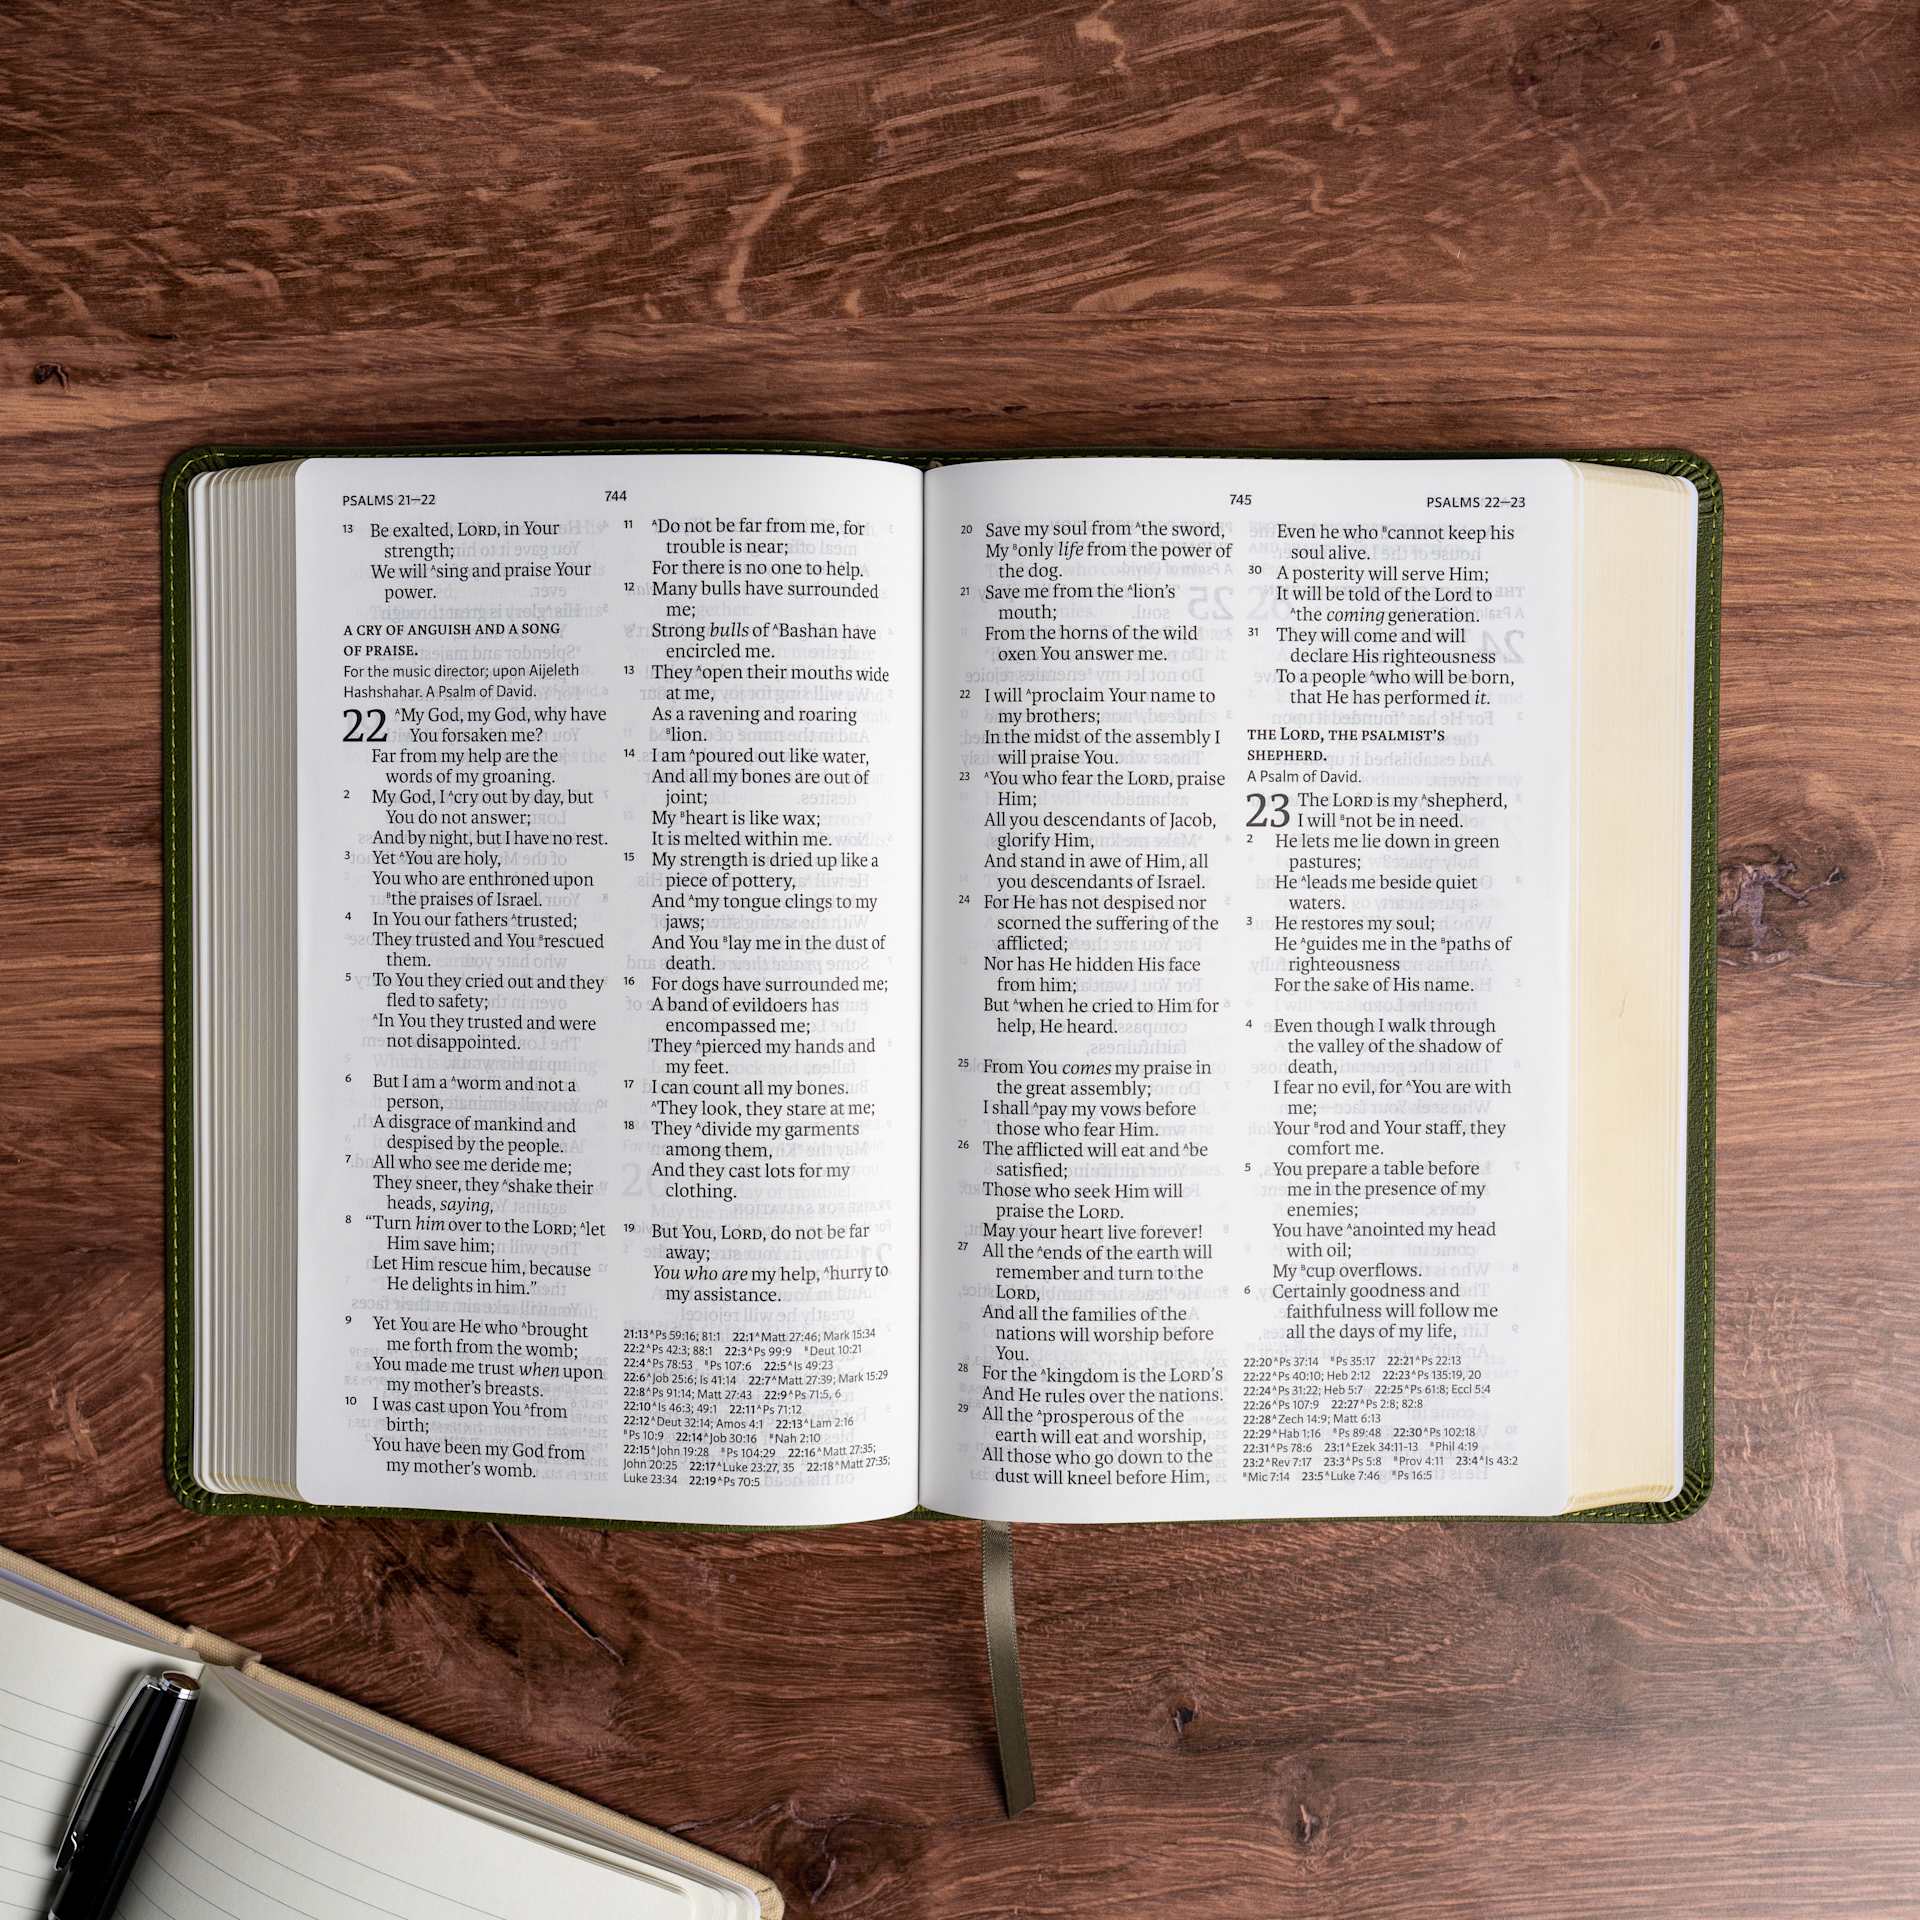 PSALMS 21—22
744
13 Be exalted, LORD, in Your
strength;
We will ᴬsing and praise Your
power.
A CRY OF ANGUISH AND A SONG
OF PRAISE.
For the music director; upon Aijeleth
Hashshahar. A Psalm of David.
22 ᴬMy God, my God, why have
You forsaken me?
Far from my help are the
words of my groaning.
2 My God, I ᴬcry out by day, but
You do not answer;
And by night, but I have no rest.
3 Yet ᴬYou are holy,
You who are enthroned upon
ᴮthe praises of Israel.
4 In You our fathers ᴬtrusted;
They trusted and You ᴮrescued
them.
5 To You they cried out and they
fled to safety;
ᴬIn You they trusted and were
not disappointed.
6 But I am a ᴬworm and not a
person,
A disgrace of mankind and
despised by the people.
7 All who see me deride me;
They sneer, they ᴬshake their
heads, saying,
8 “Turn him over to the LORD; ᴬlet
Him save him;
Let Him rescue him, because
He delights in him.”
9 Yet You are He who ᴬbrought
me forth from the womb;
You made me trust when upon
my mother’s breasts.
10 I was cast upon You ᴬfrom
birth;
You have been my God from
my mother’s womb.
11 ᴬDo not be far from me, for
trouble is near;
For there is no one to help.
12 Many bulls have surrounded
me;
Strong bulls of ᴬBashan have
encircled me.
13 They ᴬopen their mouths wide
at me,
As a ravening and roaring
ᴮlion.
14 I am ᴬpoured out like water,
And all my bones are out of
joint;
My ᴮheart is like wax;
It is melted within me.
15 My strength is dried up like a
piece of pottery,
And ᴬmy tongue clings to my
jaws;
And You ᴮlay me in the dust of
death.
16 For dogs have surrounded me;
A band of evildoers has
encompassed me;
They ᴬpierced my hands and
my feet.
17 I can count all my bones.
ᴬThey look, they stare at me;
18 They ᴬdivide my garments
among them,
And they cast lots for my
clothing.
19 But You, LORD, do not be far
away;
You who are my help, ᴬhurry to
my assistance.
21:13 ᴬPs 59:16; 81:1 22:1 ᴬMatt 27:46; Mark 15:34
22:2 ᴬPs 42:3; 88:1 22:3 ᴬPs 99:9 ᴮDeut 10:21
22:4 ᴬPs 78:53 ᴮPs 107:6 22:5 ᴬIs 49:23
22:6 ᴬJob 25:6; Is 41:14 22:7 ᴬMatt 27:39; Mark 15:29
22:8 ᴬPs 91:14; Matt 27:43 22:9 ᴬPs 71:5, 6
22:10 ᴬIs 46:3; 49:1 22:11 ᴬPs 71:12
22:12 ᴬDeut 32:14; Amos 4:1 22:13 ᴬLam 2:16
ᴮPs 10:9 22:14 ᴬJob 30:16 ᴮNah 2:10
22:15 ᴬJohn 19:28 ᴮPs 104:29 22:16 ᴬMatt 27:35;
John 20:25 22:17 ᴬLuke 23:27, 35 22:18 ᴬMatt 27:35;
Luke 23:34 22:19 ᴬPs 70:5
745
PSALMS 22—23
20 Save my soul from ᴬthe sword,
My ᴮonly life from the power of
the dog.
21 Save me from the ᴬlion’s
mouth;
From the horns of the wild
oxen You answer me.
22 I will ᴬproclaim Your name to
my brothers;
In the midst of the assembly I
will praise You.
23 ᴬYou who fear the LORD, praise
Him;
All you descendants of Jacob,
glorify Him,
And stand in awe of Him, all
you descendants of Israel.
24 For He has not despised nor
scorned the suffering of the
afflicted;
Nor has He hidden His face
from him;
But ᴬwhen he cried to Him for
help, He heard.
25 From You comes my praise in
the great assembly;
I shall ᴬpay my vows before
those who fear Him.
26 The afflicted will eat and ᴬbe
satisfied;
Those who seek Him will
praise the LORD.
May your heart live forever!
27 All the ᴬends of the earth will
remember and turn to the
LORD,
And all the families of the
nations will worship before
You.
28 For the ᴬkingdom is the LORD’S
And He rules over the nations.
29 All the ᴬprosperous of the
earth will eat and worship,
All those who go down to the
dust will kneel before Him,
Even he who ᴮcannot keep his
soul alive.
30 A posterity will serve Him;
It will be told of the Lord to
ᴬthe coming generation.
31 They will come and will
declare His righteousness
To a people ᴬwho will be born,
that He has performed it.
THE LORD, THE PSALMIST’S
SHEPHERD.
A Psalm of David.
23 The LORD is my ᴬshepherd,
I will ᴮnot be in need.
2 He lets me lie down in green
pastures;
He ᴬleads me beside quiet
waters.
3 He restores my soul;
He ᴬguides me in the ᴮpaths of
righteousness
For the sake of His name.
4 Even though I walk through
the valley of the shadow of
death,
I fear no evil, for ᴬYou are with
me;
Your ᴮrod and Your staff, they
comfort me.
5 You prepare a table before
me in the presence of my
enemies;
You have ᴬanointed my head
with oil;
My ᴮcup overflows.
6 Certainly goodness and
faithfulness will follow me
all the days of my life,
22:20 ᴬPs 37:14 ᴮPs 35:17 22:21 ᴬPs 22:13
22:22 ᴬPs 40:10; Heb 2:12 22:23 ᴬPs 135:19, 20
22:24 ᴬPs 31:22; Heb 5:7 22:25 ᴬPs 61:8; Eccl 5:4
22:26 ᴬPs 107:9 22:27 ᴬPs 2:8; 82:8
22:28 ᴬZech 14:9; Matt 6:13
22:29 ᴬHab 1:16 ᴮPs 89:48 22:30 ᴬPs 102:18
22:31 ᴬPs 78:6 23:1 ᴬEzek 34:11-13 ᴮPhil 4:19
23:2 ᴬRev 7:17 23:3 ᴬPs 5:8 ᴮProv 4:11 23:4 ᴬIs 43:2
ᴮMic 7:14 23:5 ᴬLuke 7:46 ᴮPs 16:5